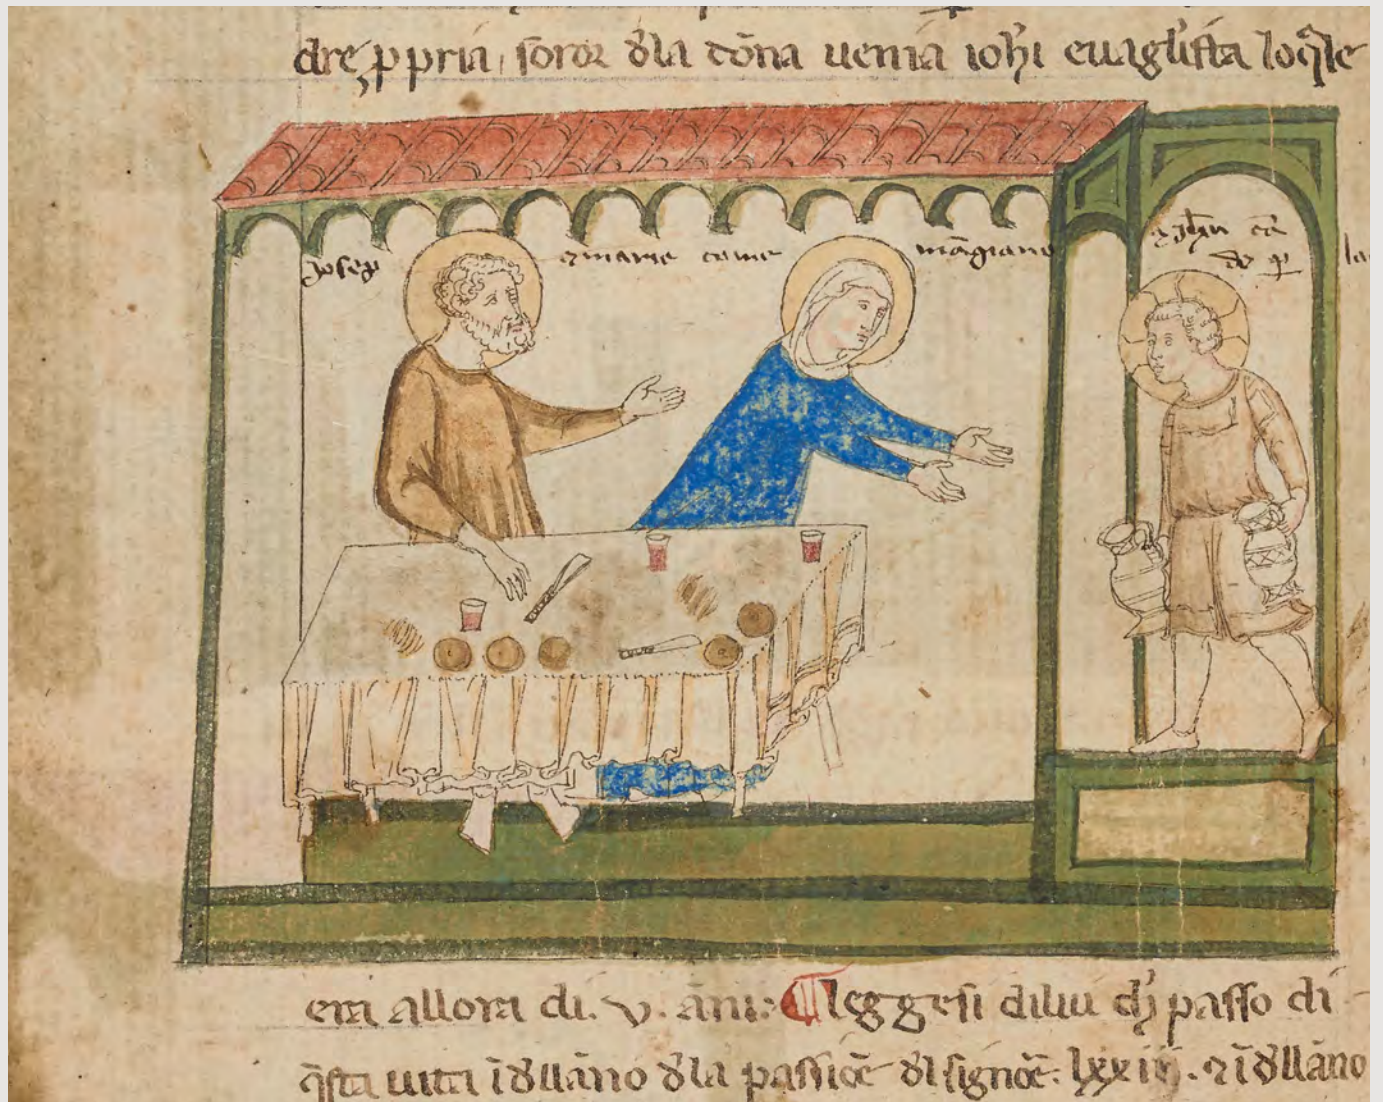 dre, ꝑ pria, soror dla dōna uenia ioħi euāglista loq̄le
Josep ⁊ maria come māgiano ⁊ yħu cō
de ꝑ la
era allora di .v. āni: ¶ leggesi di lui cħ passo di
q̄sta uita ī dll āno dla passiōe dl signōe. lxxiij. ⁊ ī dll āno